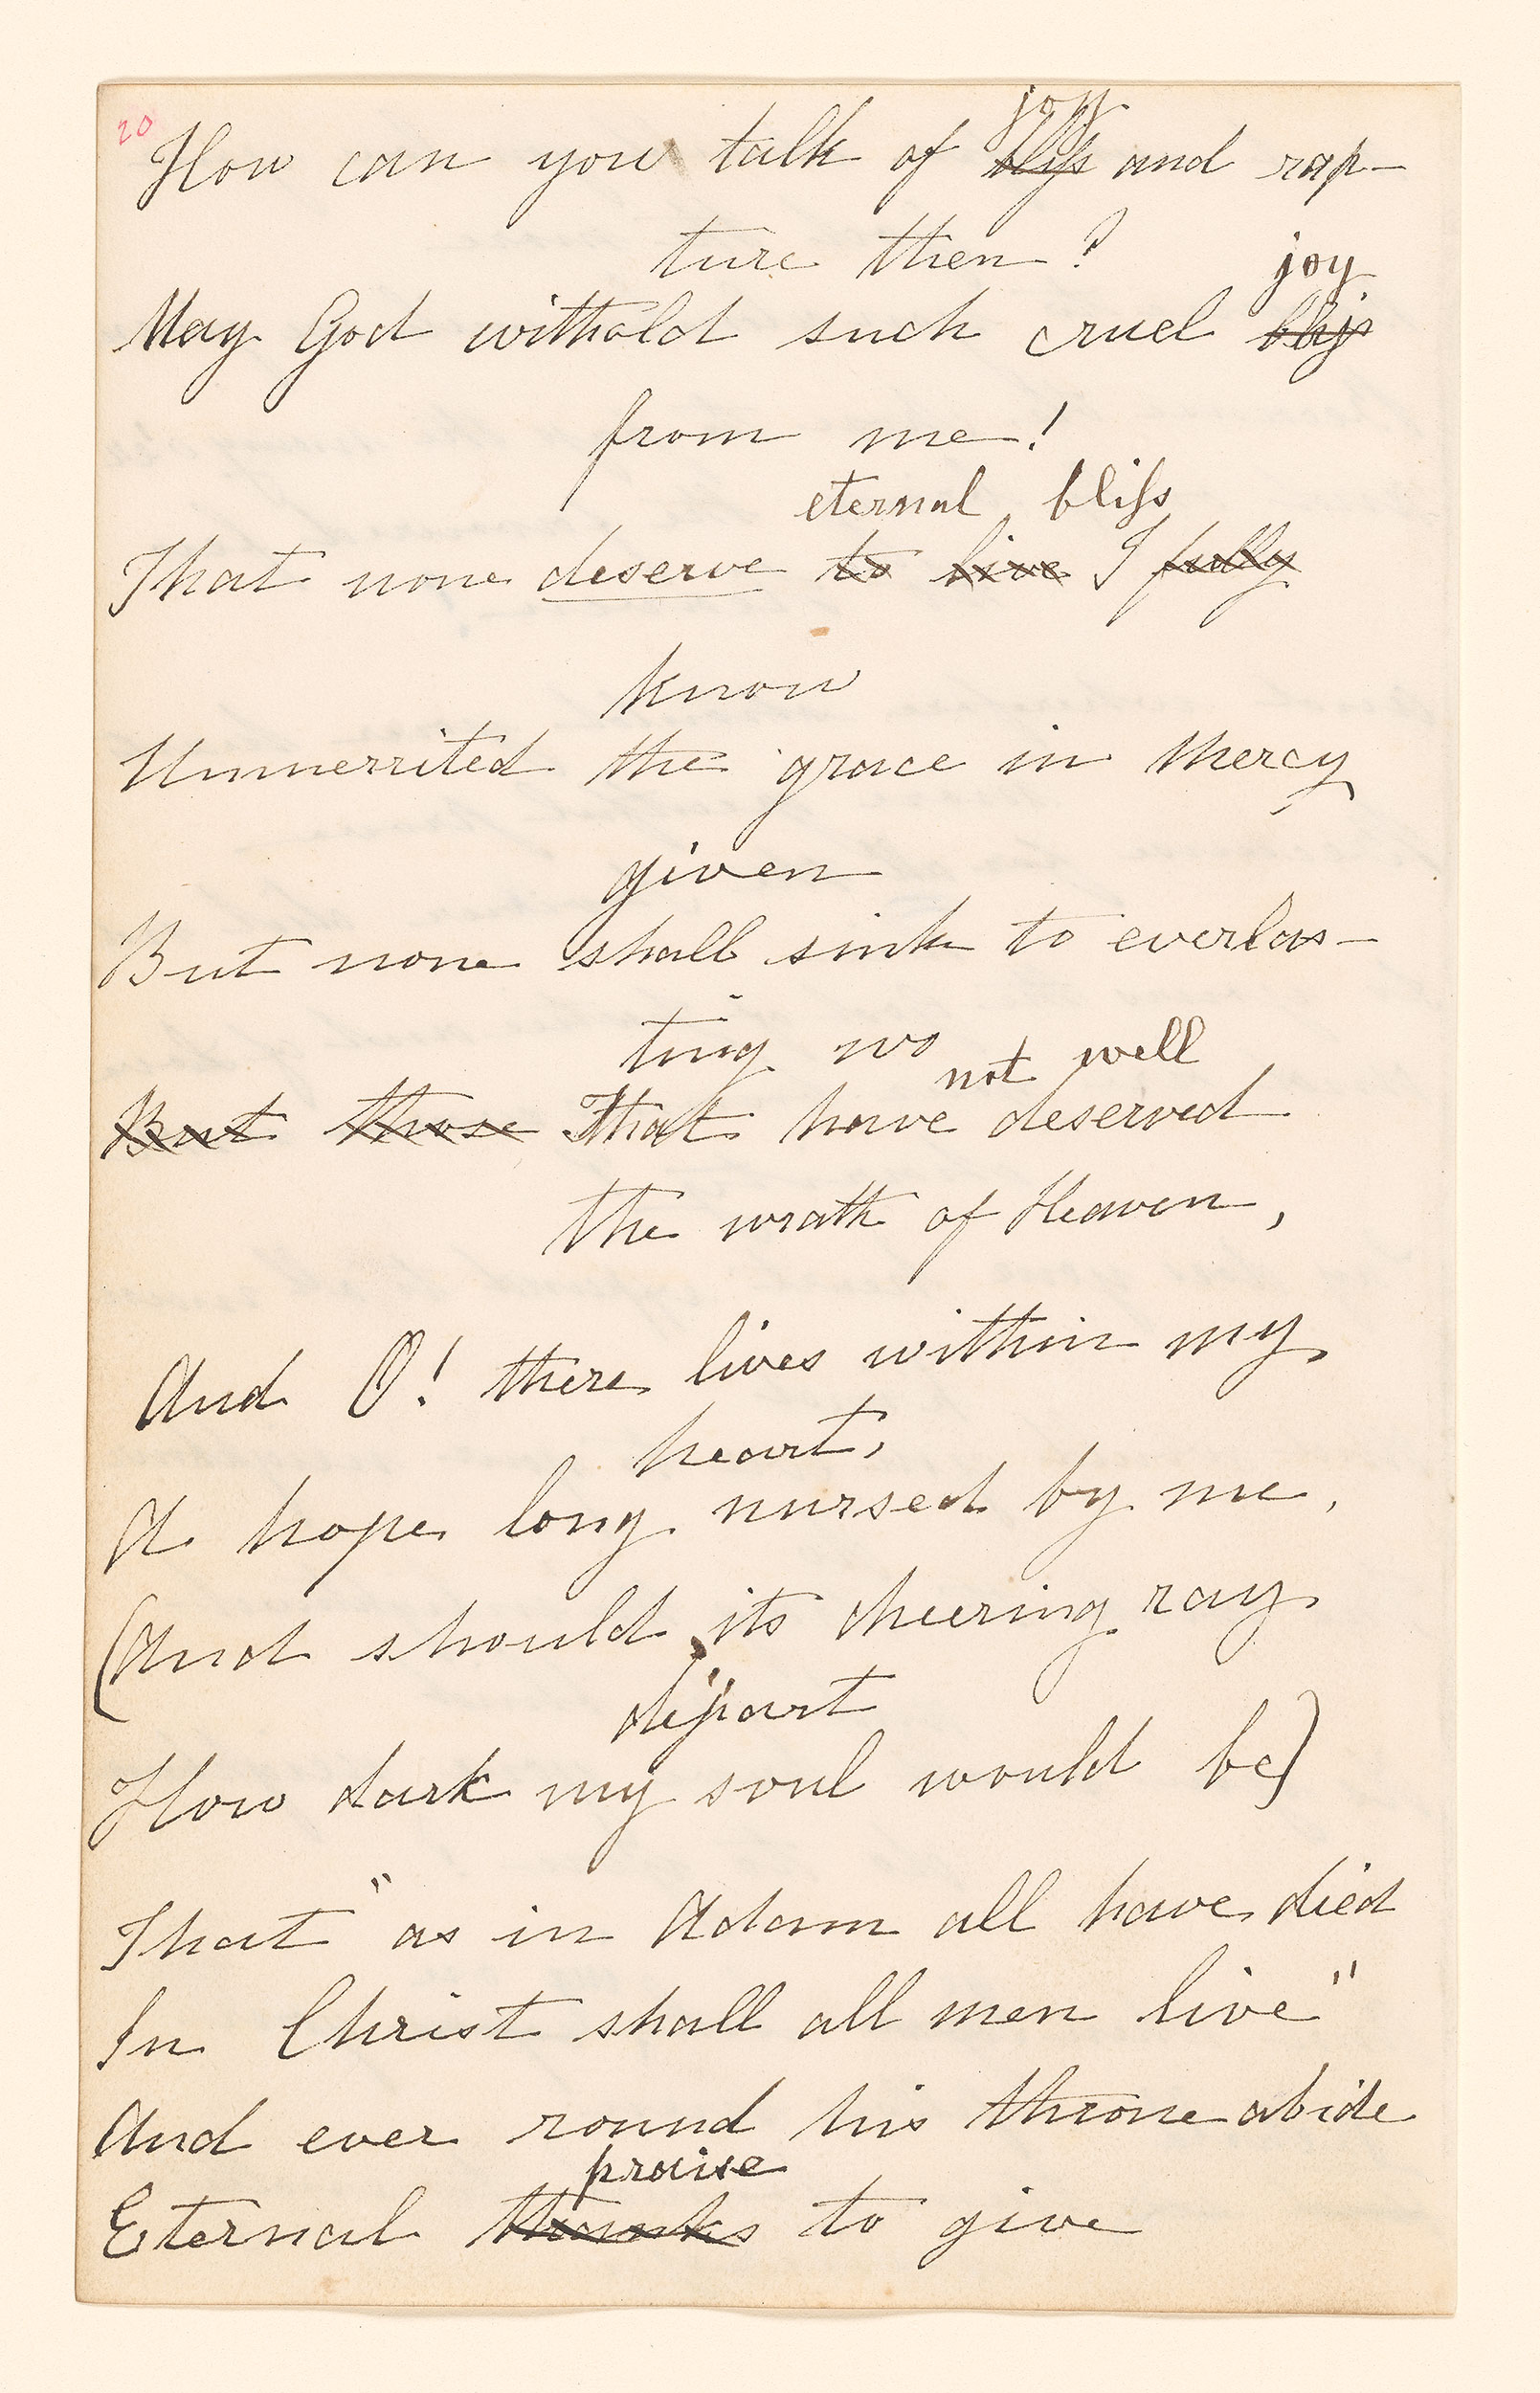 20
joy
How can you talk of bliss and rap-
ture then?
joy
May God withold such cruel bliss
from me!
eternal bliss
That none deserve to live I fully
know
Unmerrited the grace in mercy
given
But none shall sink to everlas-
ting wo
not well
But those That have deserved
the wrath of Heaven,
And O! there lives within my
heart,
A hope long nursed by me,
(And should its cheering ray
depart
How dark my soul would be)
That "as in Adam all have died
In Christ shall all men live"
And ever round his throne abide
praise
Eternal thanks to give